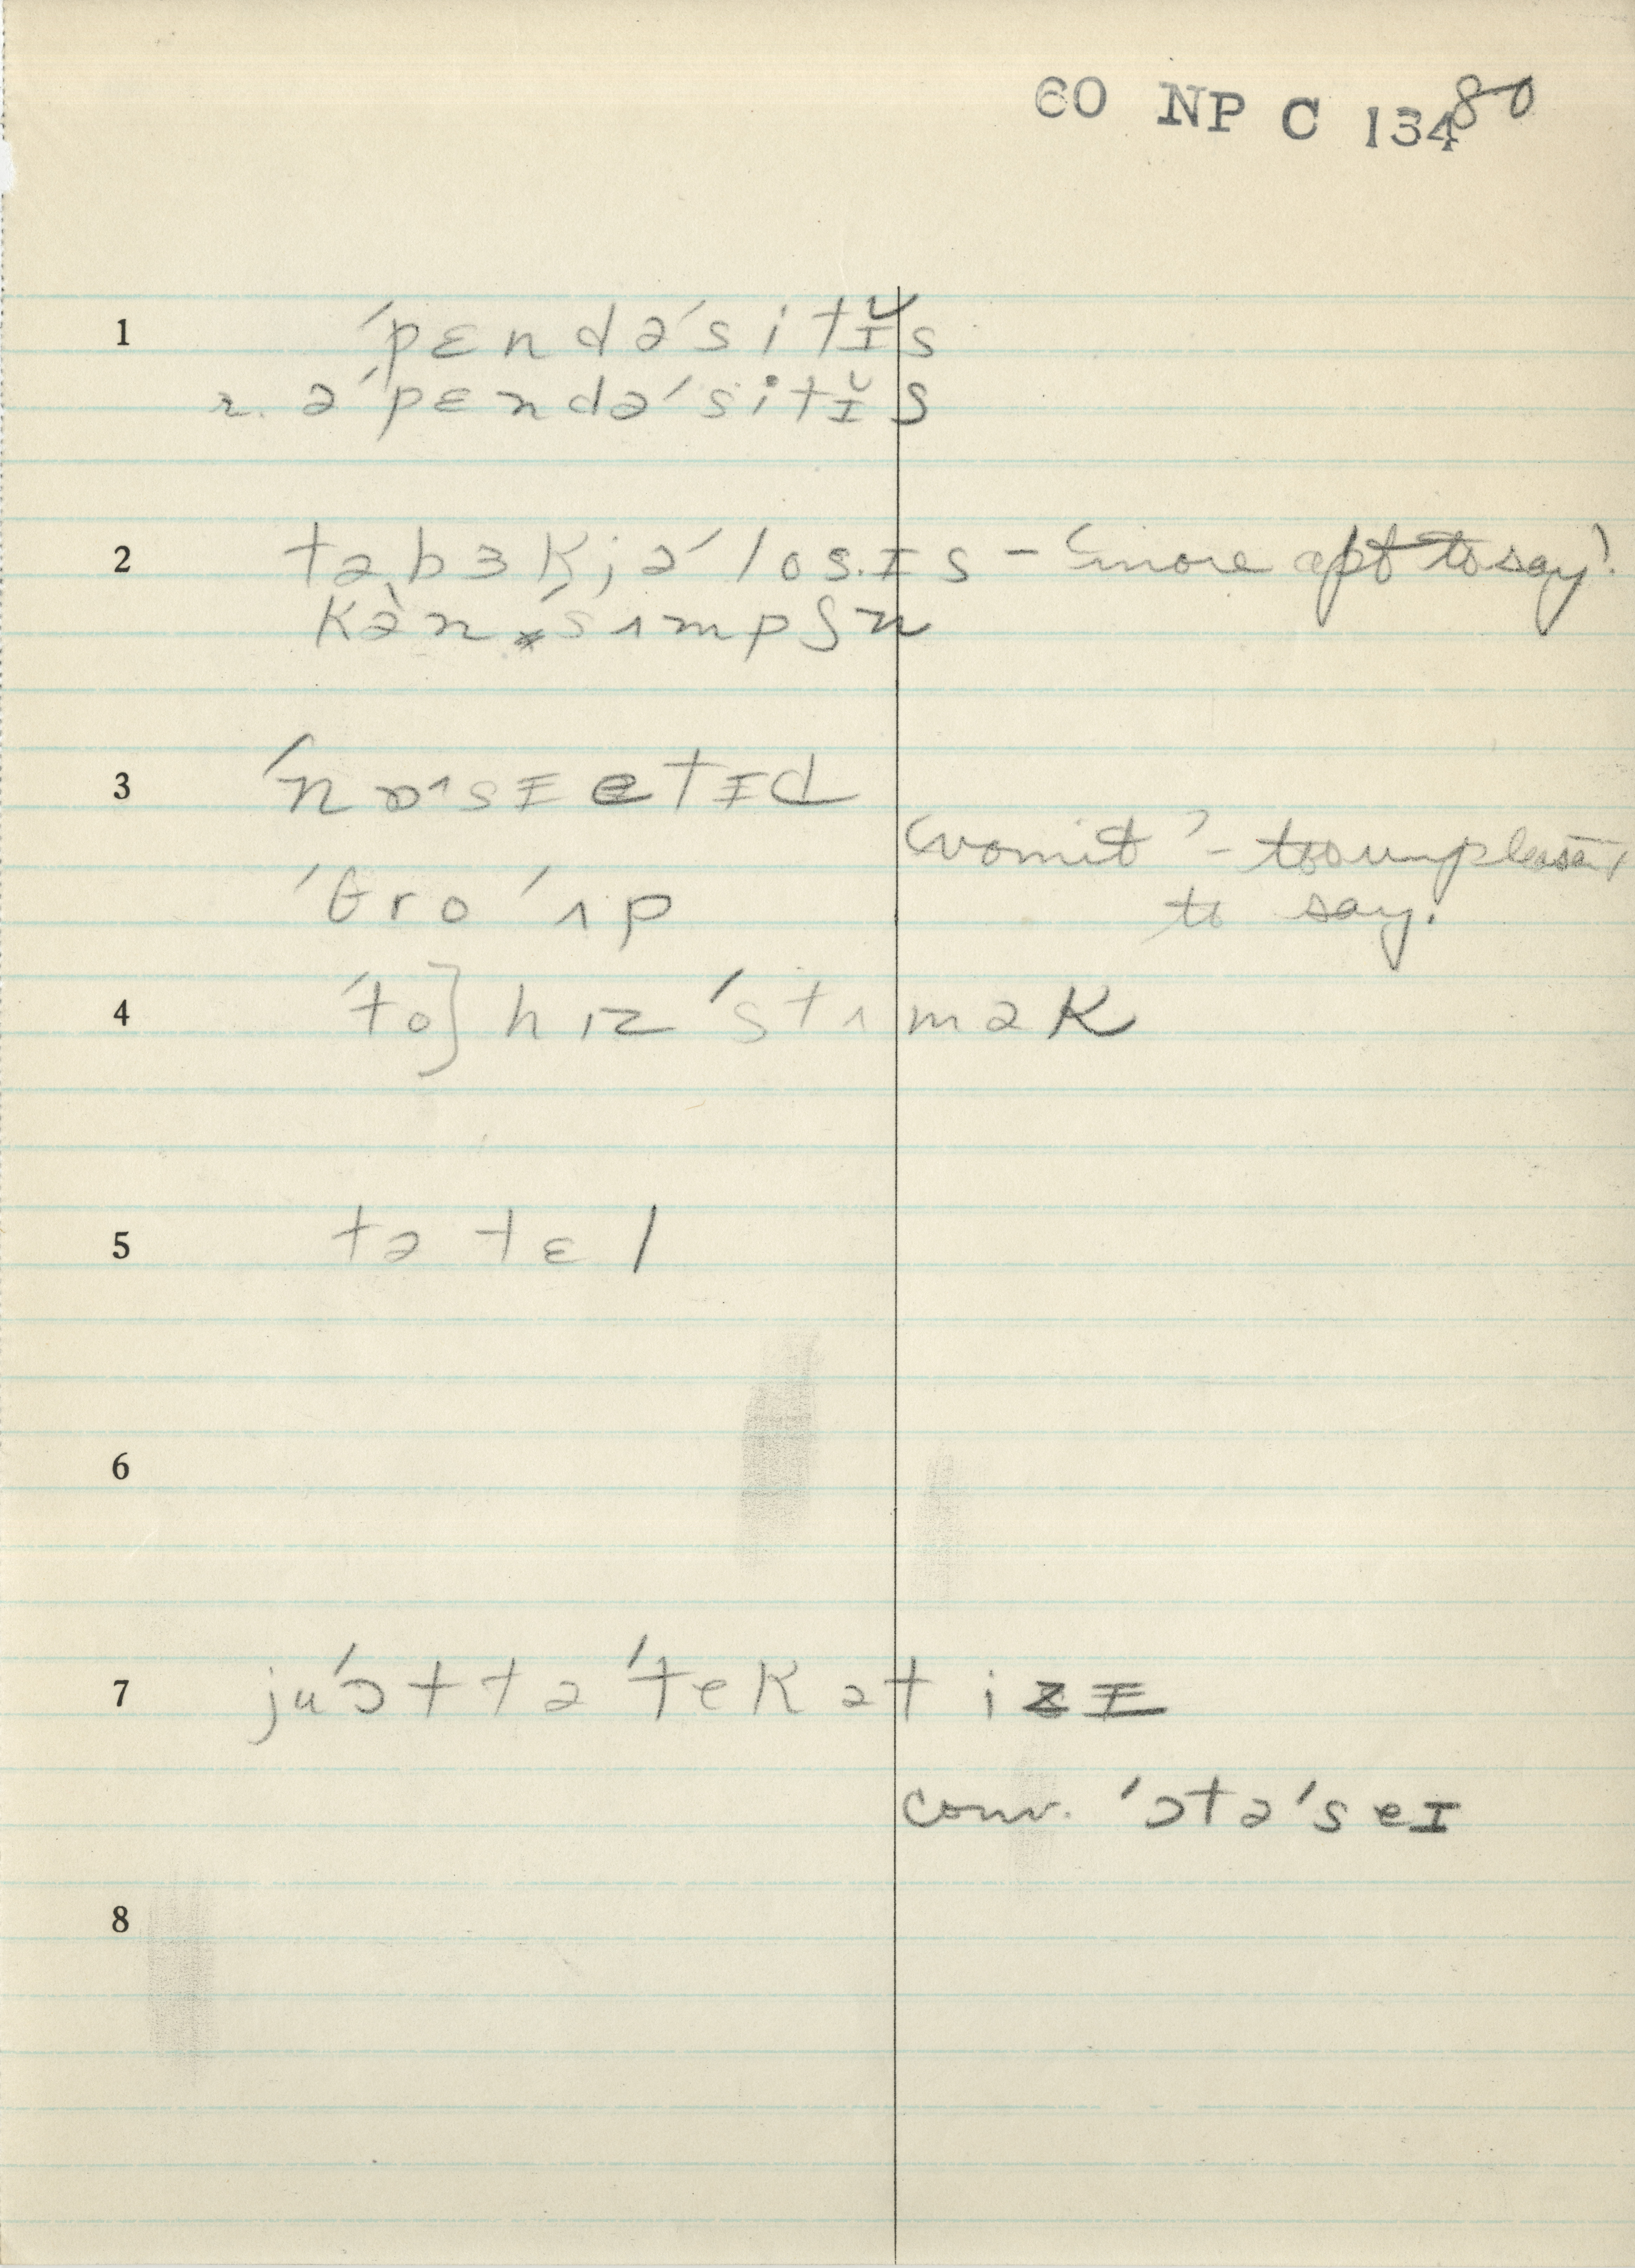 60 NP C 134 80
1 ˈpɛndəˈsitɪ̆s
r. əˈpɛndəˈsitɪ̆s
2 təbɜkjəˈlosɪs – 'more apt to say'.
kə̀nˈsʌmpʃn
3 ˈnɒˑsɪetɪd
'vomit' – too unpleasant
ˈθroˈʌp
to say.
4 ˈto] hɪz ˈstʌmək
5 tə tɛl
6
7 juˈɔt tə ˈtek ət izɪ
conv. ˈɔtəˈseɪ
8